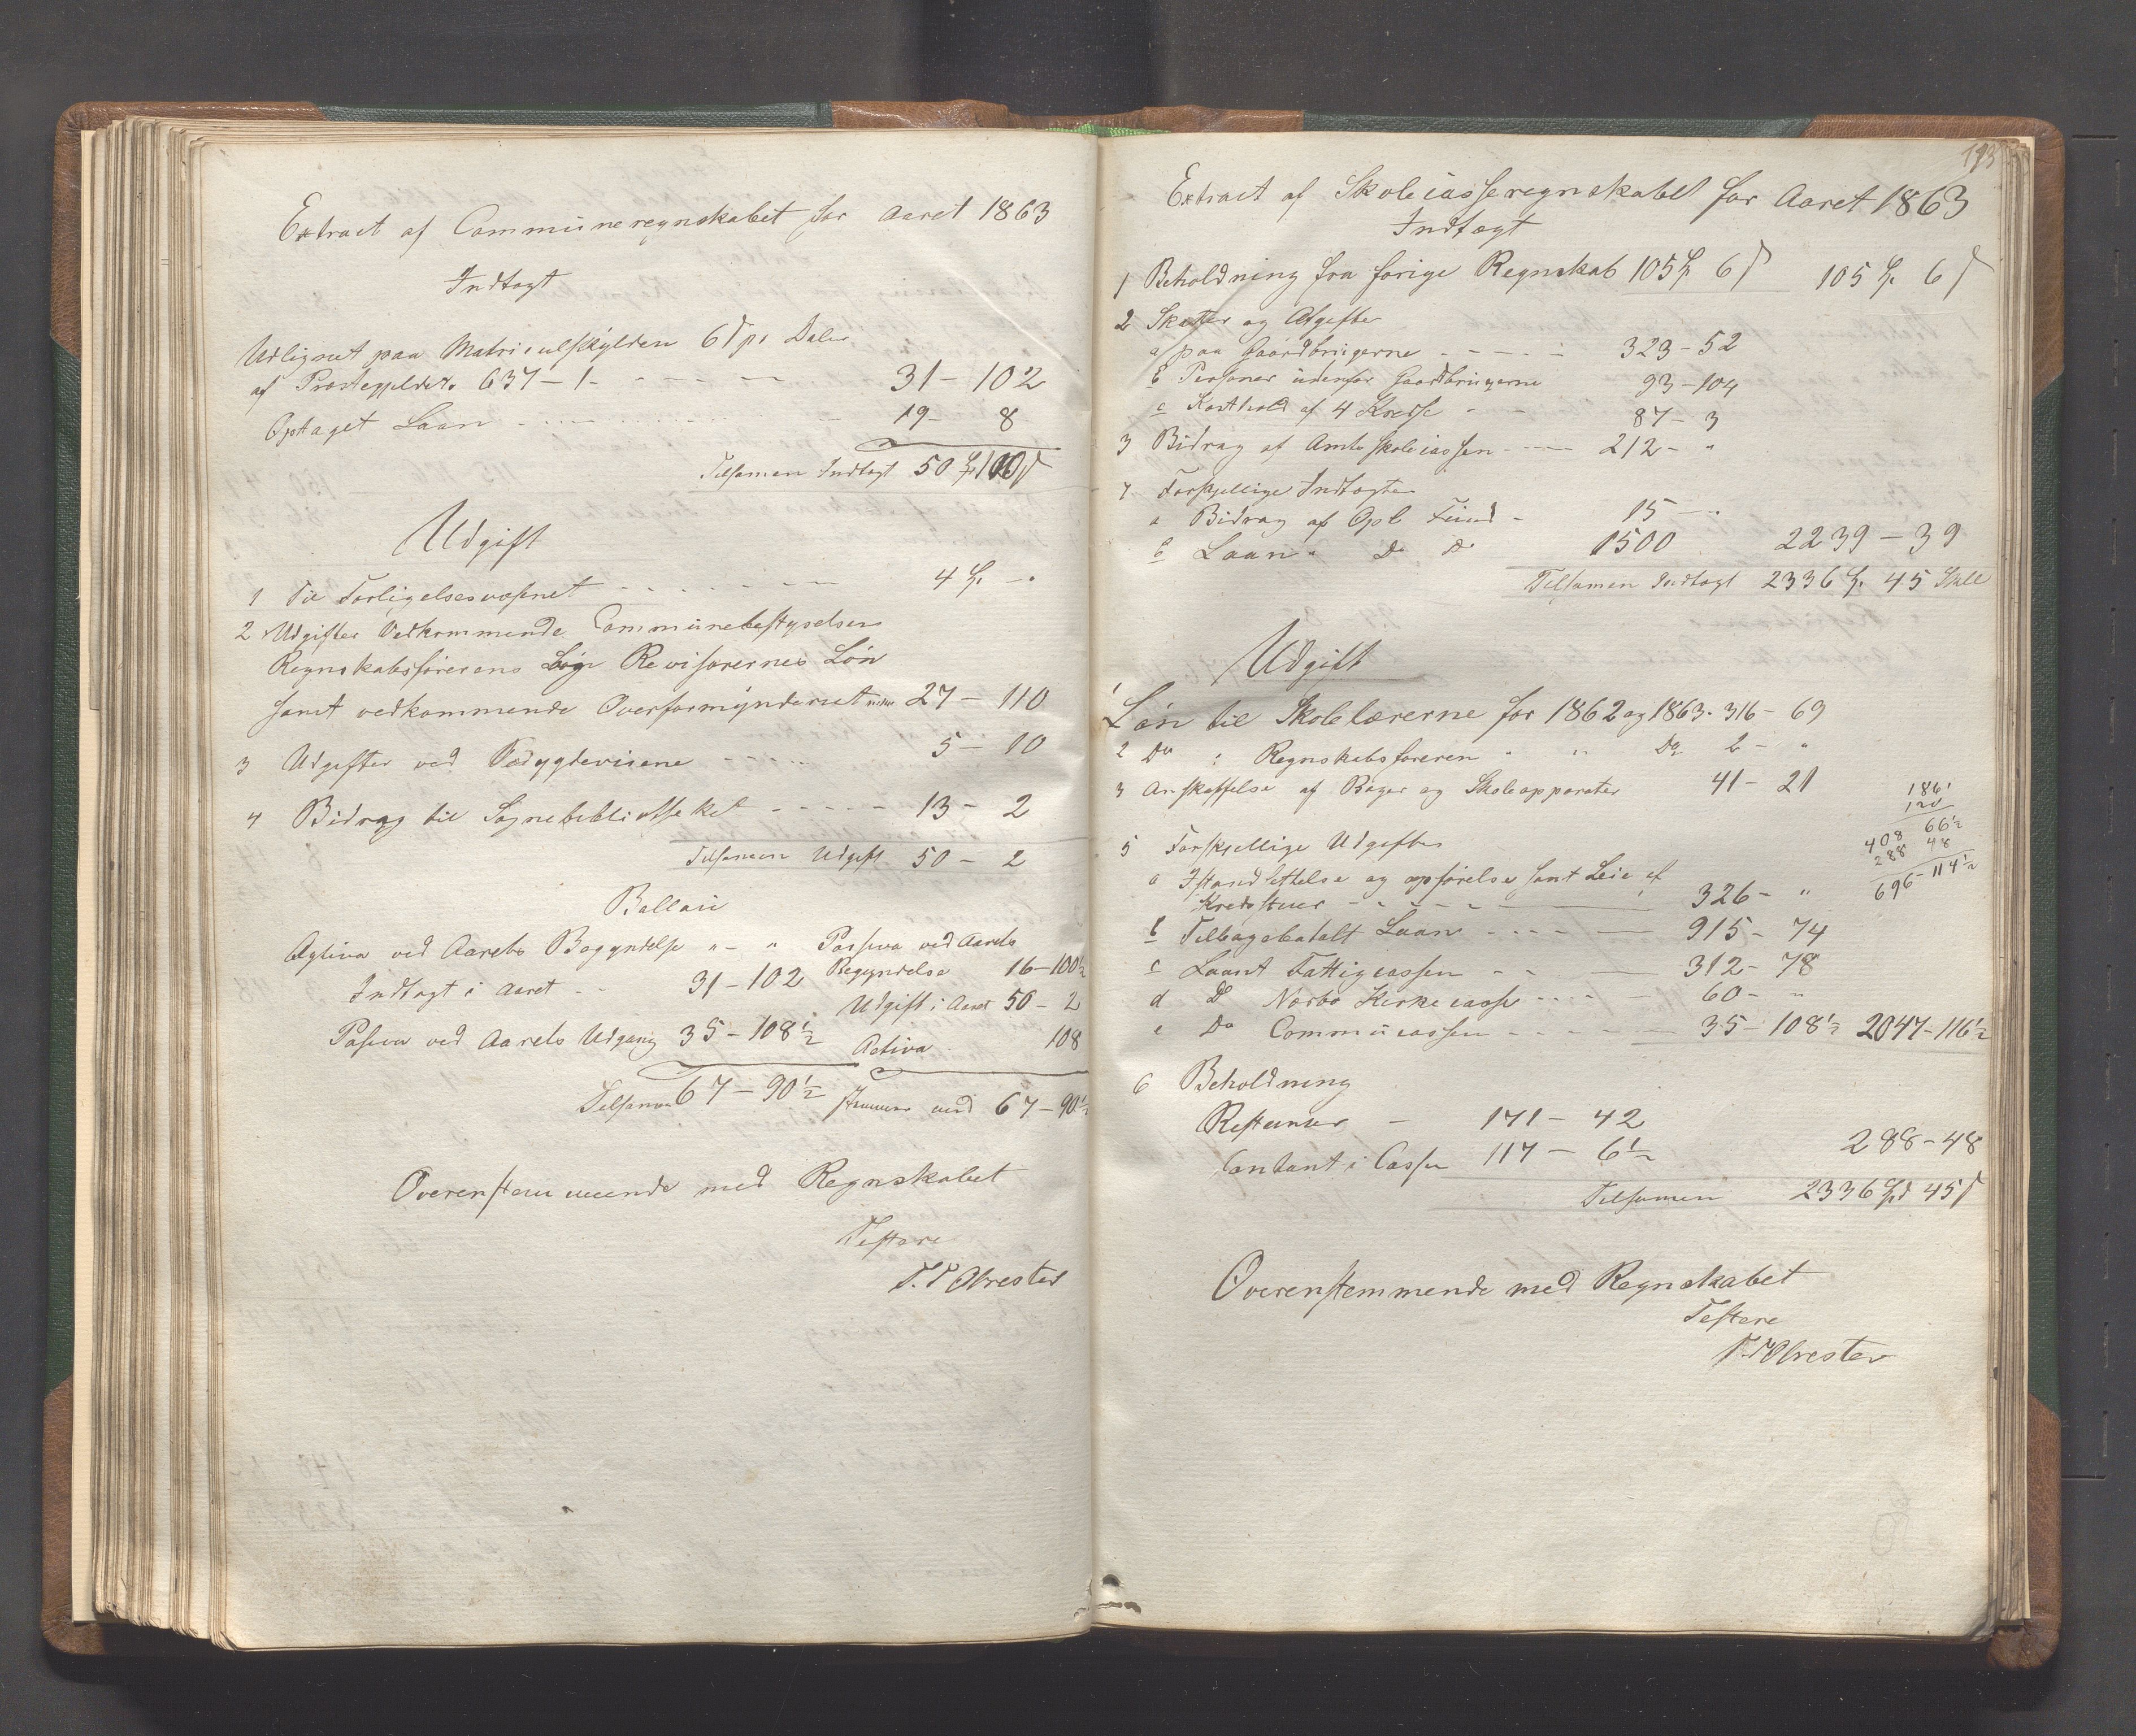 Extract af Communeregnskabet for Aaret 1863
Indtægt
Udlignet paa Matriculskylden 6 s pr Daler
af Præstegjeldets 637 - 1 - 31 - 102
Optaget Laan 19 - 8
Tilsamen Indtægt 50 Sp 110 s
Udgift
1 Til Forligelsesvæsenet 4 Sp -
2 Udgifter Vedkommende Communebestyrelsen
Regnskabsførerens Løn Revisorernes Løn
samt vedkommende Overformynderiet 27 - 110
3 Udgifter ved 5 - 10
4 Bidrag til Sognebibliotheket 13 - 2
Tilsamen Udgift 50 - 2
Ballan
Aqtiva ved Aarets Begyndelse " - " Passiva ved Aarets
Begyndelse 16 - 100½
Indtægt i Aaret 31 - 102
Udgift i Aaret 50 - 2
Passiva ved Aarets Udgang 35 - 108½
Activa 108
Tilsamen 67 - 90½ 67 - 90½
Overenstemmende med Regnskabet
Testere
T. T Obrestad
193
Extract af Skolecasseregnskabet for Aaret 1863
Indtægt
1 Behold­ning fra forige Regnskab 105 Sp 6 s 105 Sp 6 s
2 Skatter og Afgifter
a paa Gaardbrugerne 323 - 52
b Personer udenfor Gaardbrugerne 93 - 104
c Kosthold af 4 Kredse 87 - 3
3 Bidrag af Amtsskolecassen 212 - "
4 Forskjellige Indtægter
a Bidrag af Opl Fund 15 - "
b Laan " Do Do 1500 2239 - 39
Tilsamen Indtægt 2336 Sp 45 Skill
Udgift
1 Løn til Skolelærerne for 1862 og 1863 316 - 69
2 Do : Regnskabsføreren " " Do 2 - "
3 Anskaffelse af Bøger og Skoleapparater 41 - 21
1861
120
408 66½
288 48
696 - 114½
5 Forskjellige Udgifter
a Istandsettelse og opførelse samt Leie af
Kredsstuer 326 - "
b Tilbagebetalt Laan 915 - 74
c Laant Fattigcassen 312 - 78
d Do Nærbø Kirkecasse 60 - "
e Do Commucassen 35 - 108½ 2047 - 116½
6 Beholdning
Restanser 171 - 42
Contant i Cassen 117 - 6½ 288 - 48
Tilsamen 2336 Spd 45 s
Overenstemmende med Regnskabet
Testere
T. T Obrestad